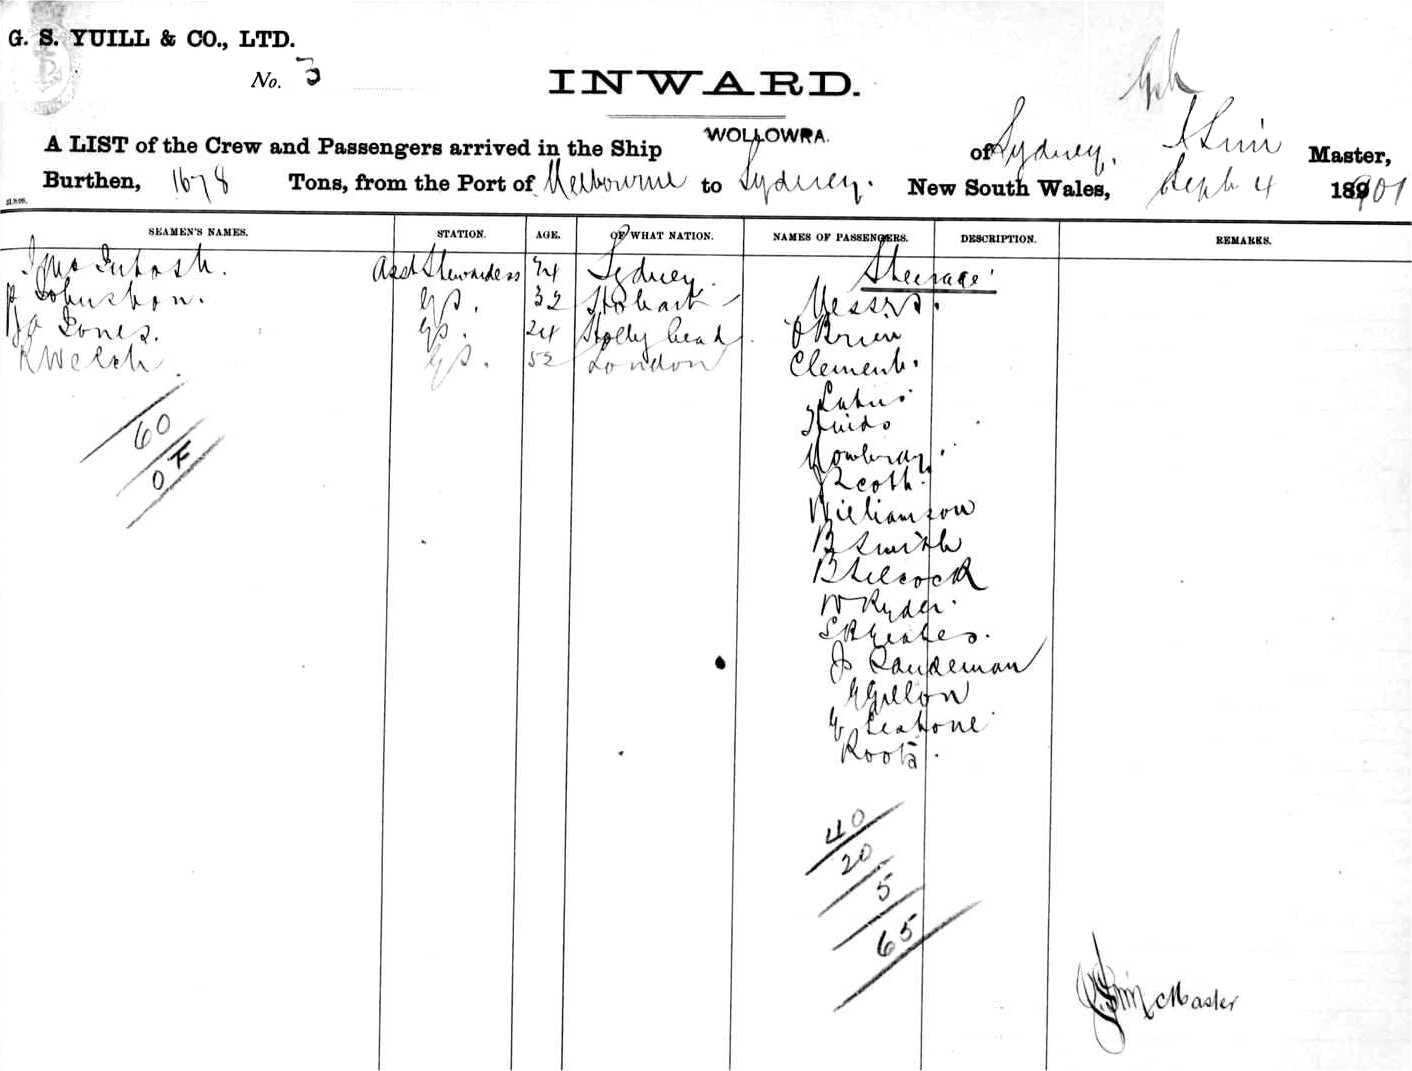 G. S. YUILL & CO., LTD.
No. 3
INWARD.
A LIST of the Crew and Passengers arrived in the Ship WOLLOWRA. of Sydney, Master,
Burthen, 1678 Tons, from the Port of Melbourne to Sydney. New South Wales, Sept 4 1901
SEAMEN'S NAMES. STATION. AGE. OF WHAT NATION. NAMES OF PASSENGERS. DESCRIPTION. REMARKS.
McIntosh. Asst Stewardess Sydney. Steerage
Johnston. 32 Hobart Messrs.
Jones. 24 Holly head O'Brien
R Welch 52 London Clement.
60
0 F
Mowbray.
Scott.
Williamson
B Smith
B Silcock
W Ryder.
Js Sandeman
Gillon
Roots.
40
20
5
65
Master